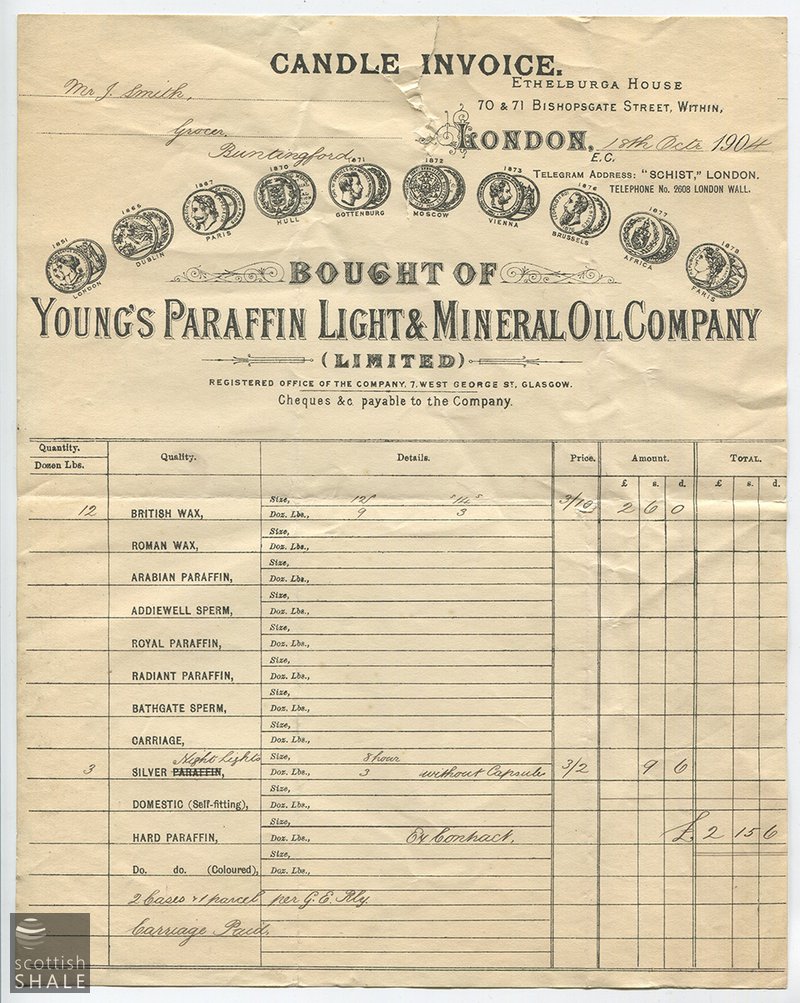 CANDLE INVOICE.
Mr J. Smith,
Grocer.
Buntingford,
ETHELBURGA HOUSE
70 & 71 BISHOPSGATE STREET, WITHIN,
LONDON, 18th Octr 1904
E.C.
TELEGRAM ADDRESS: "SCHIST," LONDON.
TELEPHONE No. 2608 LONDON WALL.
1851 LONDON
1865 DUBLIN
1867 PARIS
1870 HULL
1871 GOTTENBURG
1872 MOSCOW
1873 VIENNA
1876 BRUSSELS
1877 AFRICA
1878 PARIS
BOUGHT OF
YOUNG'S PARAFFIN LIGHT & MINERAL OIL COMPANY
(LIMITED)
REGISTERED OFFICE OF THE COMPANY, 7, WEST GEORGE ST, GLASGOW.
Cheques &c. payable to the Company.
Quantity. Quality. Details. Price. Amount. TOTAL.
Dozen Lbs.
£ s. d. £ s. d.
Size,
12 BRITISH WAX, Doz. Lbs., 9 3 3/10 2 6 0
Size,
ROMAN WAX, Doz. Lbs.,
Size,
ARABIAN PARAFFIN, Doz. Lbs.,
Size,
ADDIEWELL SPERM, Doz. Lbs.,
Size,
ROYAL PARAFFIN, Doz. Lbs.,
Size,
RADIANT PARAFFIN, Doz. Lbs.,
Size,
BATHGATE SPERM, Doz. Lbs.,
Size,
CARRIAGE, Doz. Lbs.,
Night Lights Size, 8 hour
3 SILVER PARAFFIN, Doz. Lbs., 3 without Capsule 3/2 9 6
Size,
DOMESTIC (Self-fitting), Doz. Lbs.,
Size,
HARD PARAFFIN, Doz. Lbs., Ex Contract. £ 2 15 6
Size,
Do. do. (Coloured), Doz. Lbs.,
2 Cases & 1 parcel per G. E. Rly.
Carriage Paid.
scottish
SHALE